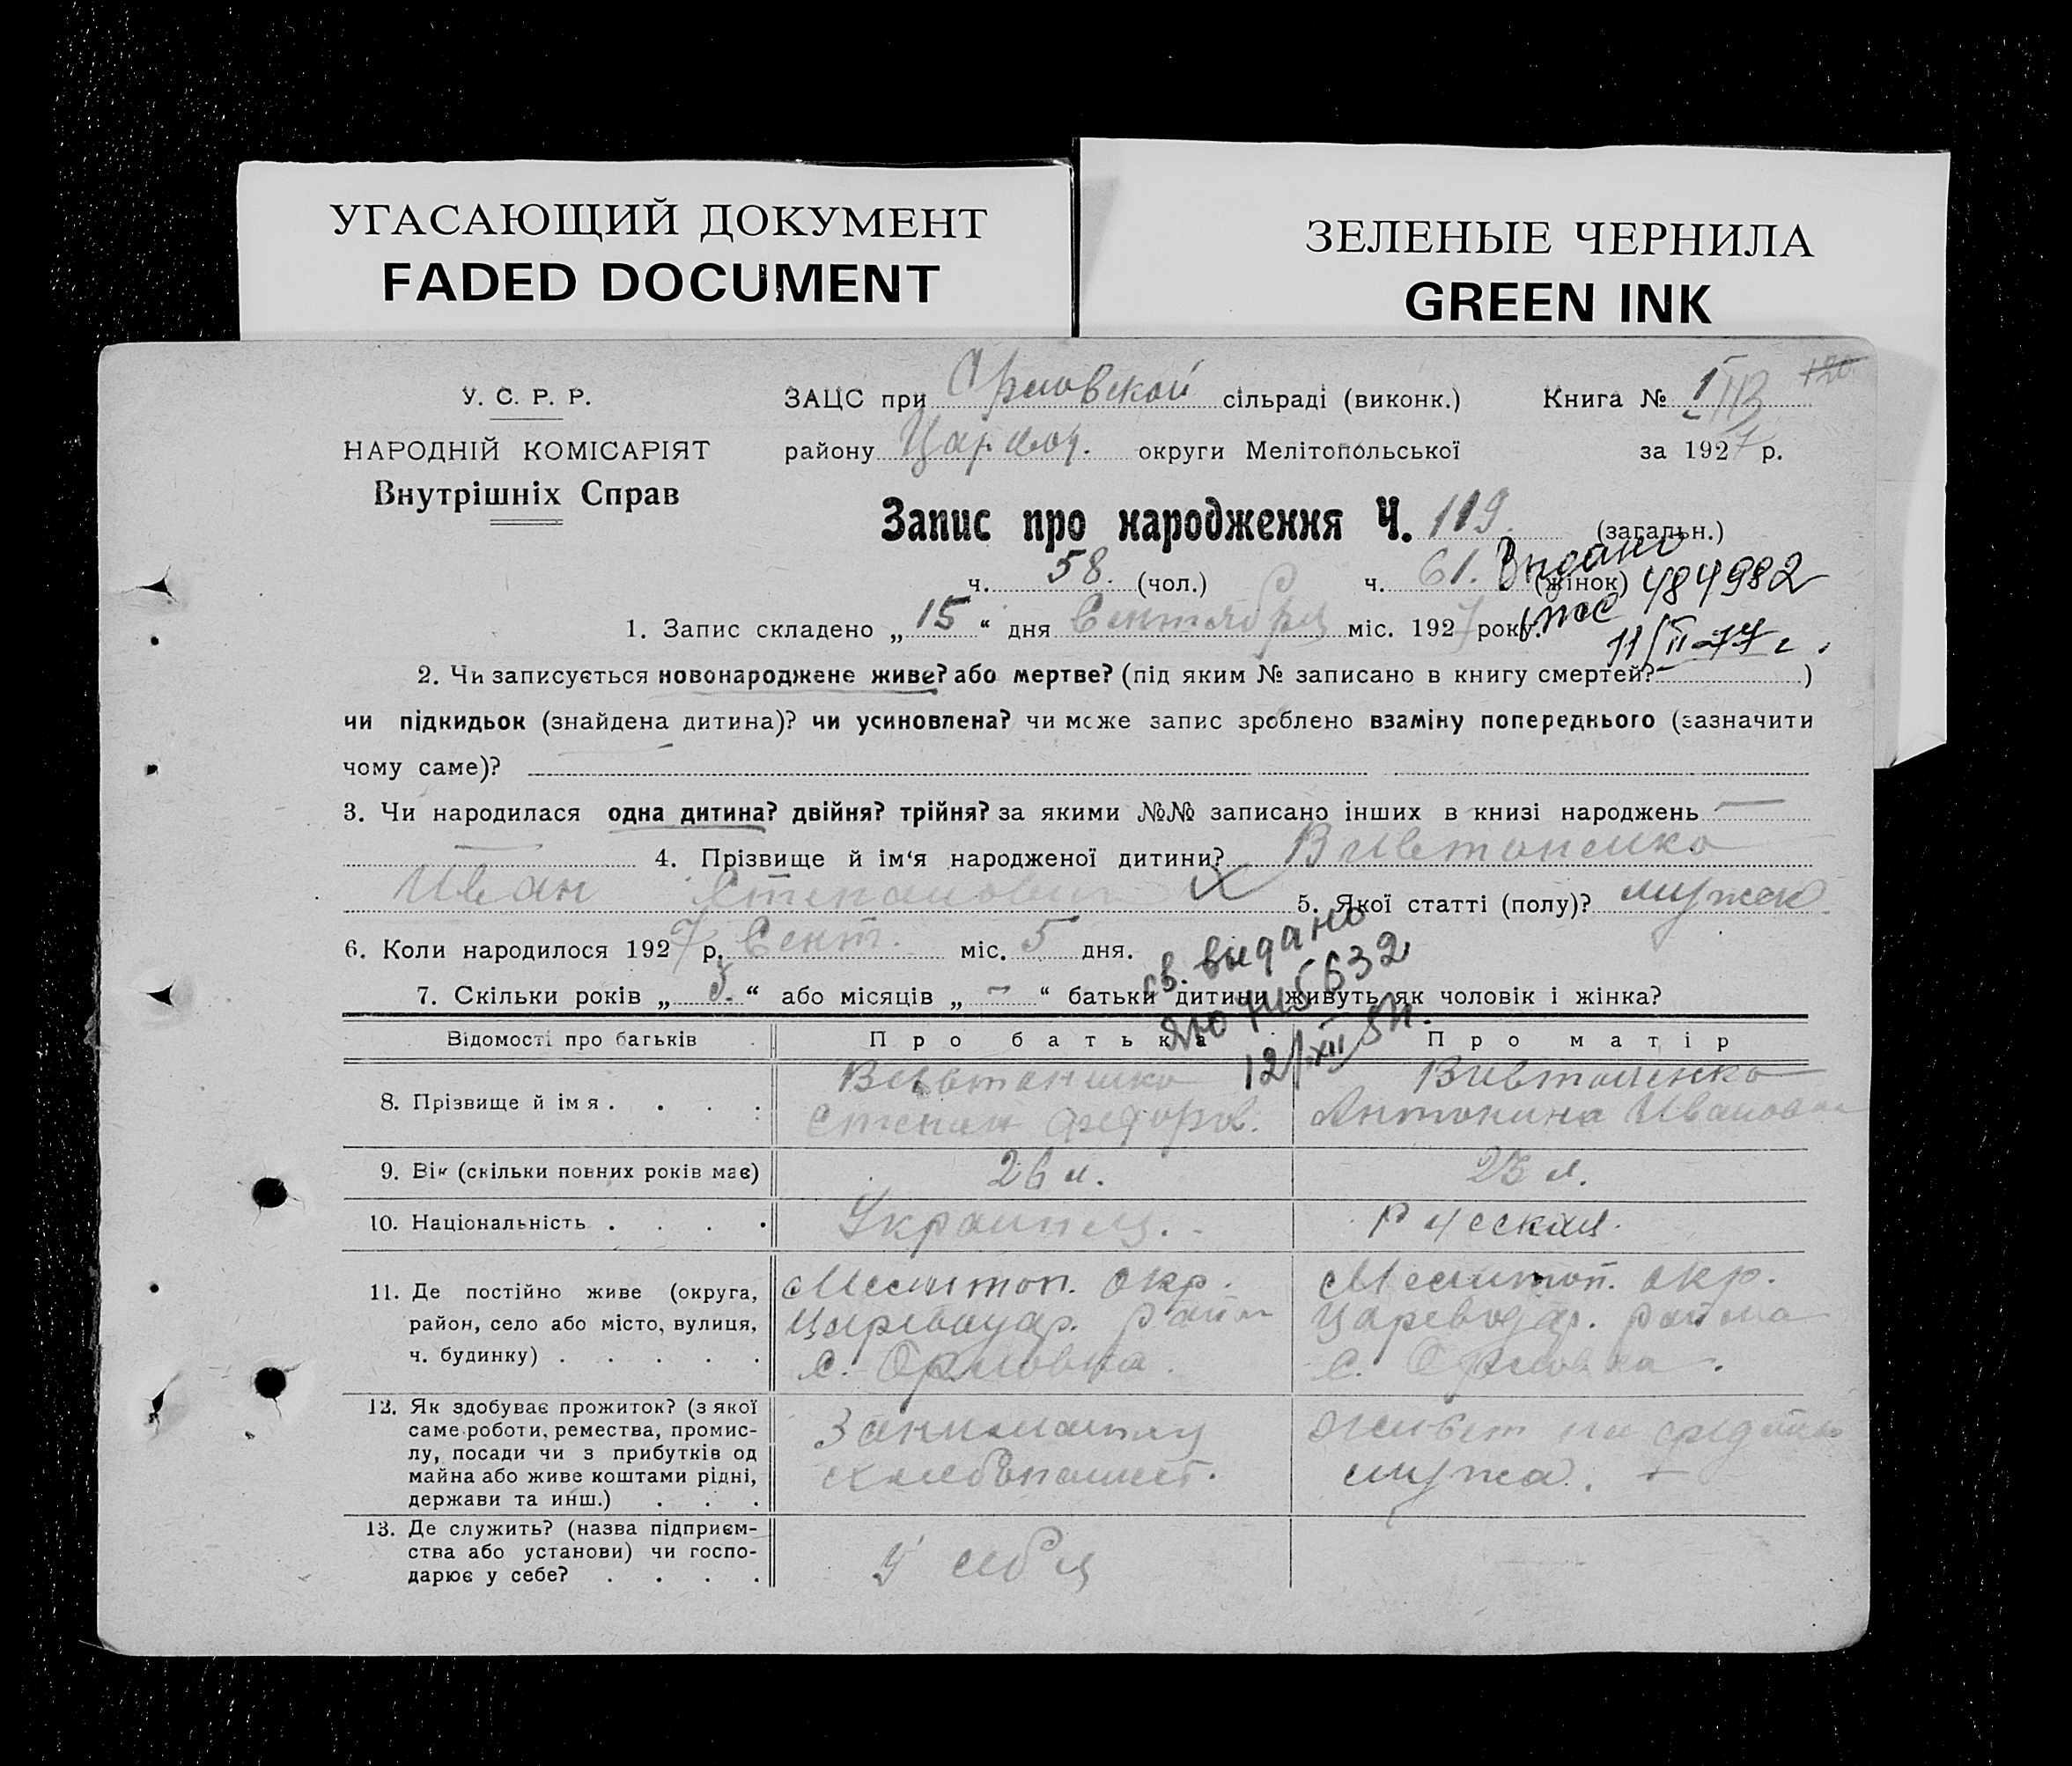 УГАСАЮЩИЙ ДОКУМЕНТ
FADED DOCUMENT
ЗЕЛЕНЫЕ ЧЕРНИЛА
GREEN INK
У. С. Р. Р.
НАРОДНІЙ КОМІСАРІЯТ
Внутрішніх Справ
ЗАЦС при Орловской сільраді (виконк.)
Книга № 120
району округи Мелітопольської
за 1927 р.
Запис про народження Ч. 119. (загальн.)
ч. 58. (чол.) ч. 61. (жінок)
Выдано
484982
11/II-77 г.
1. Запис складено „ 15 “ дня Сентября міс. 1927 року.
2. Чи записується новонароджене живе? або мертве? (під яким № записано в книгу смертей? )
чи підкидьок (знайдена дитина)? чи усиновлена? чи може запис зроблено взаміну попереднього (зазначити
чому саме)?
3. Чи народилася одна дитина? двійня? трійня? за якими №№ записано інших в книзі народжень —
— 4. Прізвище й ім‘я народженої дитини? Вивтоненко
Иван Степанович 5. Якої статті (полу)? мужск
6. Коли народилося 1927 р. Сент. міс. 5 дня.
св. выдано
7. Скільки років „ 3. “ або місяців „ – “ батьки дитини живуть як чоловік і жінка?
Відомості про батьків
Про батька
Про матір
8. Прізвище й імя . . . .
Вивтоненко
Степан Федоров.
Вивтоненко
Антонина Ивановна
9. Вік (скільки повних років має)
26 л.
25 л.
10. Національність . . . .
Украинец.
Русская.
11. Де постійно живе (округа,
район, село або місто, вулиця,
ч. будинку) . . . . .
Мелитоп. окр.
Цареводар. район
с. Орловка.
Мелитоп. окр.
Цареводар. района
с. Орловка.
12. Як здобуває прожиток? (з якої
саме роботи, ремества, промис-
лу, посади чи з прибутків од
майна або живе коштами рідні,
держави та инш.) . . .
Занимается
хлебопашест.
живет на средства
мужа.
13. Де служить? (назва підприєм-
ства або установи) чи госпо-
дарює у себе? . . . .
У себя